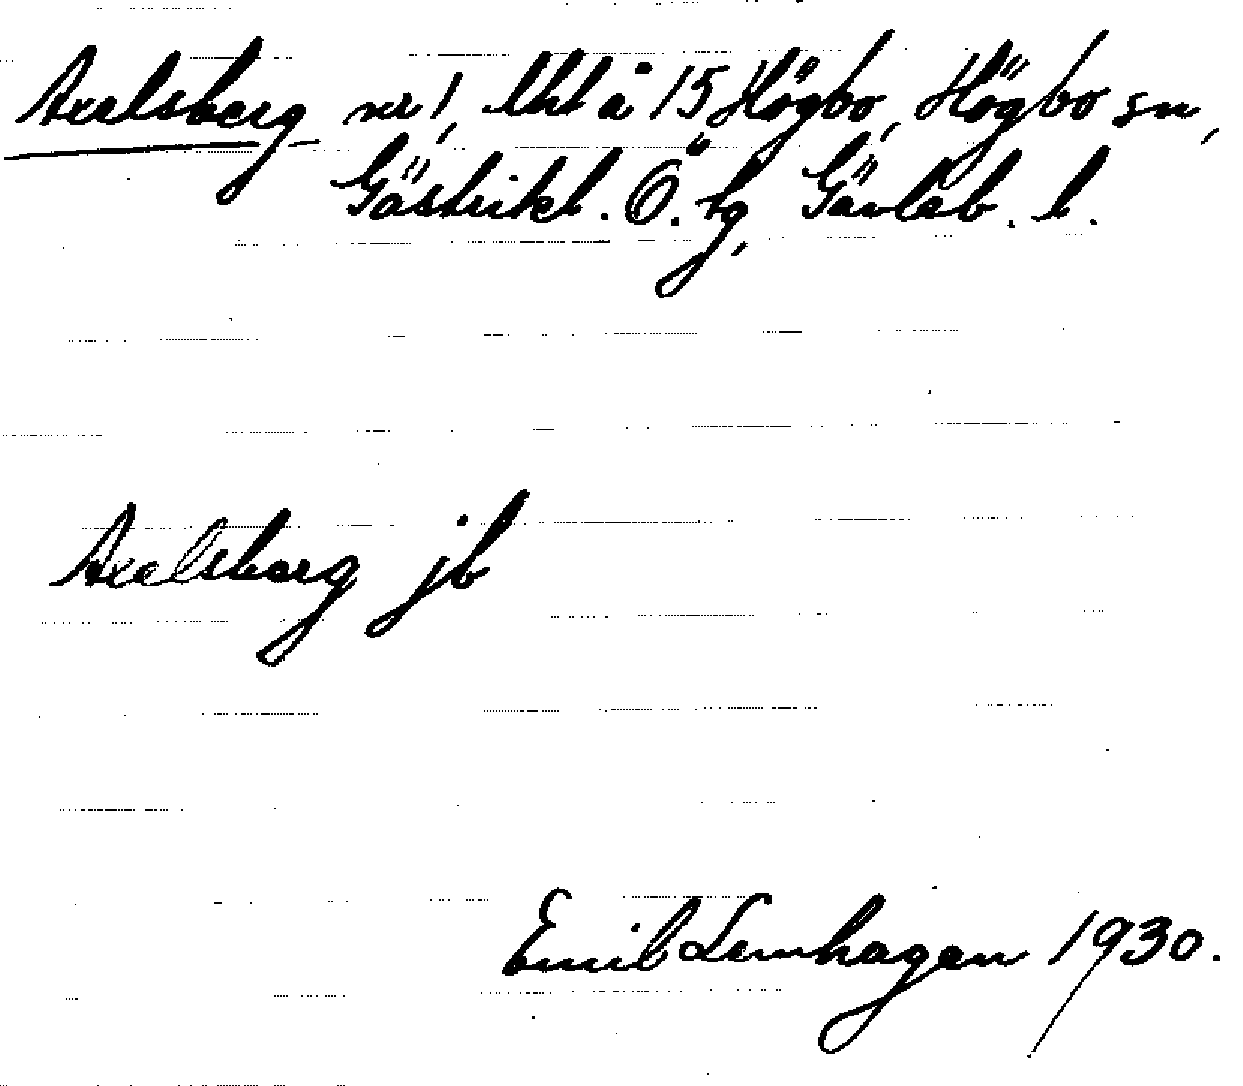 Axelsberg nr 1, lht å 15 Högbo, Högbo sn,
Gästrikl. Ö. tg, Gävleb. l.
Axelsberg jb
Emil Lernhagen 1930.